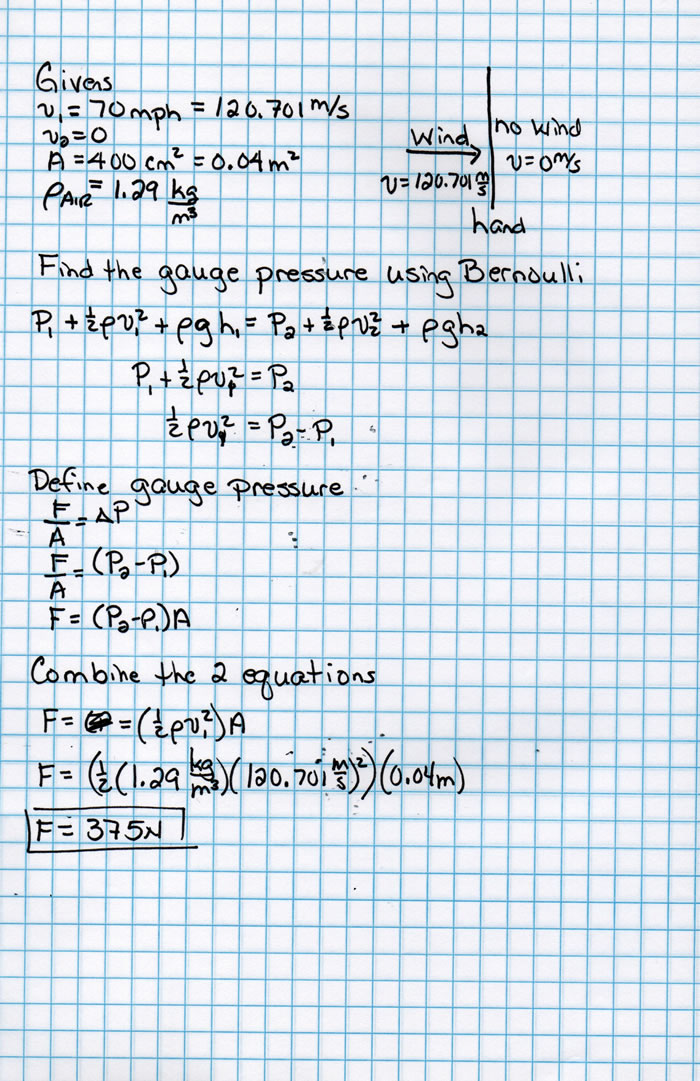 Givens
v₁ = 70 mph = 120.701 m/s
v₂ = 0
A = 400 cm² = 0.04 m²
ρAIR = 1.29 kg/m³
Wind
v = 120.701 m/s
no wind
v = 0 m/s
hand
Find the gauge pressure using Bernoulli
P₁ + ½ρv₁² + ρgh₁ = P₂ + ½ρv₂² + ρgh₂
P₁ + ½ρv₁² = P₂
½ρv₁² = P₂ - P₁
Define gauge pressure
F/A = ΔP
F/A = (P₂-P₁)
F = (P₂-P₁)A
Combine the 2 equations
F = = (½ρv₁²)A
F = (½(1.29 kg/m³)(120.701 m/s)²)(0.04m)
F = 375N